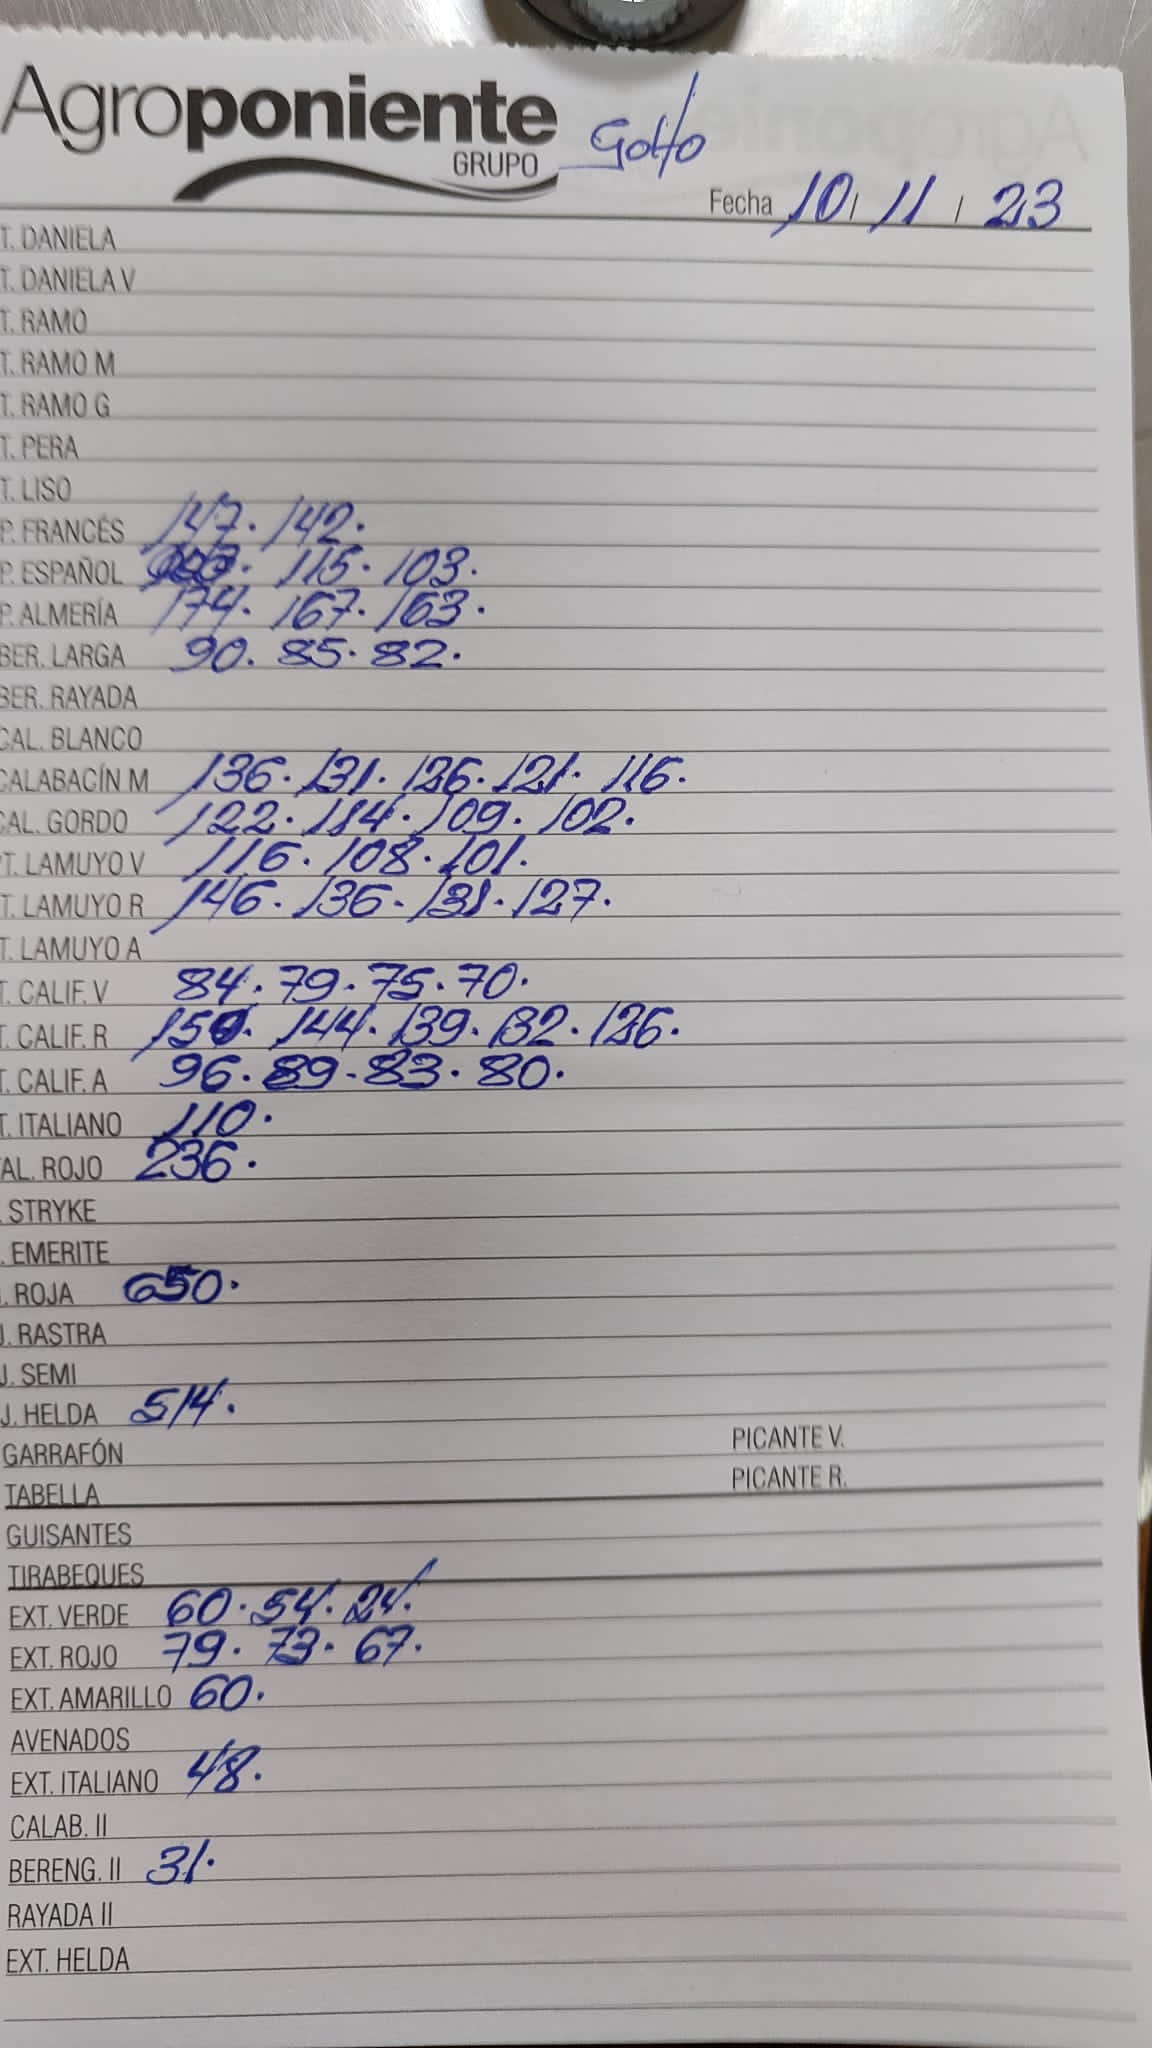 Agroponiente
GRUPO
Golfo
Fecha 10/11/23
T. DANIELA
T. DANIELA V
T. RAMO
T. RAMO M
T. RAMO G
T. PERA
T. LISO
P. FRANCÉS 147. 142.
P. ESPAÑOL 115. 103.
P. ALMERÍA 174. 167. 163.
BER. LARGA 90. 85. 82.
BER. RAYADA
CAL. BLANCO
CALABACÍN M 136. 131. 126. 121. 116.
CAL. GORDO 122. 114. 109. 102.
T. LAMUYO V 116. 108. 101.
T. LAMUYO R 146. 136. 131. 127.
T. LAMUYO A
T. CALIF. V 84. 79. 75. 70.
T. CALIF. R 150. 144. 139. 132. 126.
T. CALIF. A 96. 89. 83. 80.
T. ITALIANO 110.
AL. ROJO 236.
. STRYKE
. EMERITE
. ROJA 650.
J. RASTRA
J. SEMI
J. HELDA 514.
GARRAFÓN PICANTE V.
TABELLA PICANTE R.
GUISANTES
TIRABEQUES
EXT. VERDE 60. 54. 24.
EXT. ROJO 79. 73. 67.
EXT. AMARILLO 60.
AVENADOS
EXT. ITALIANO 48.
CALAB. II
BERENG. II 31.
RAYADA II
EXT. HELDA